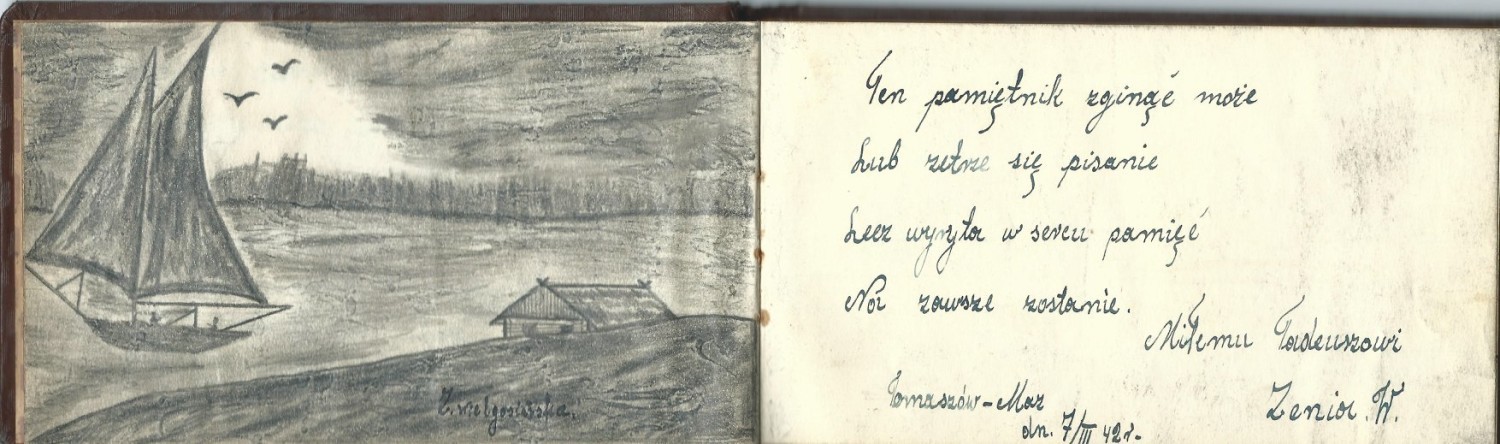 Ten pamiętnik zginąć może
Lub zetrze się pisanie
Lecz wyryta w sercu pamięć
Na zawsze zostanie.
Miłemu Tadeuszowi
Zenia. W.
Tomaszów-Maz
dn. 7/III 42 r.